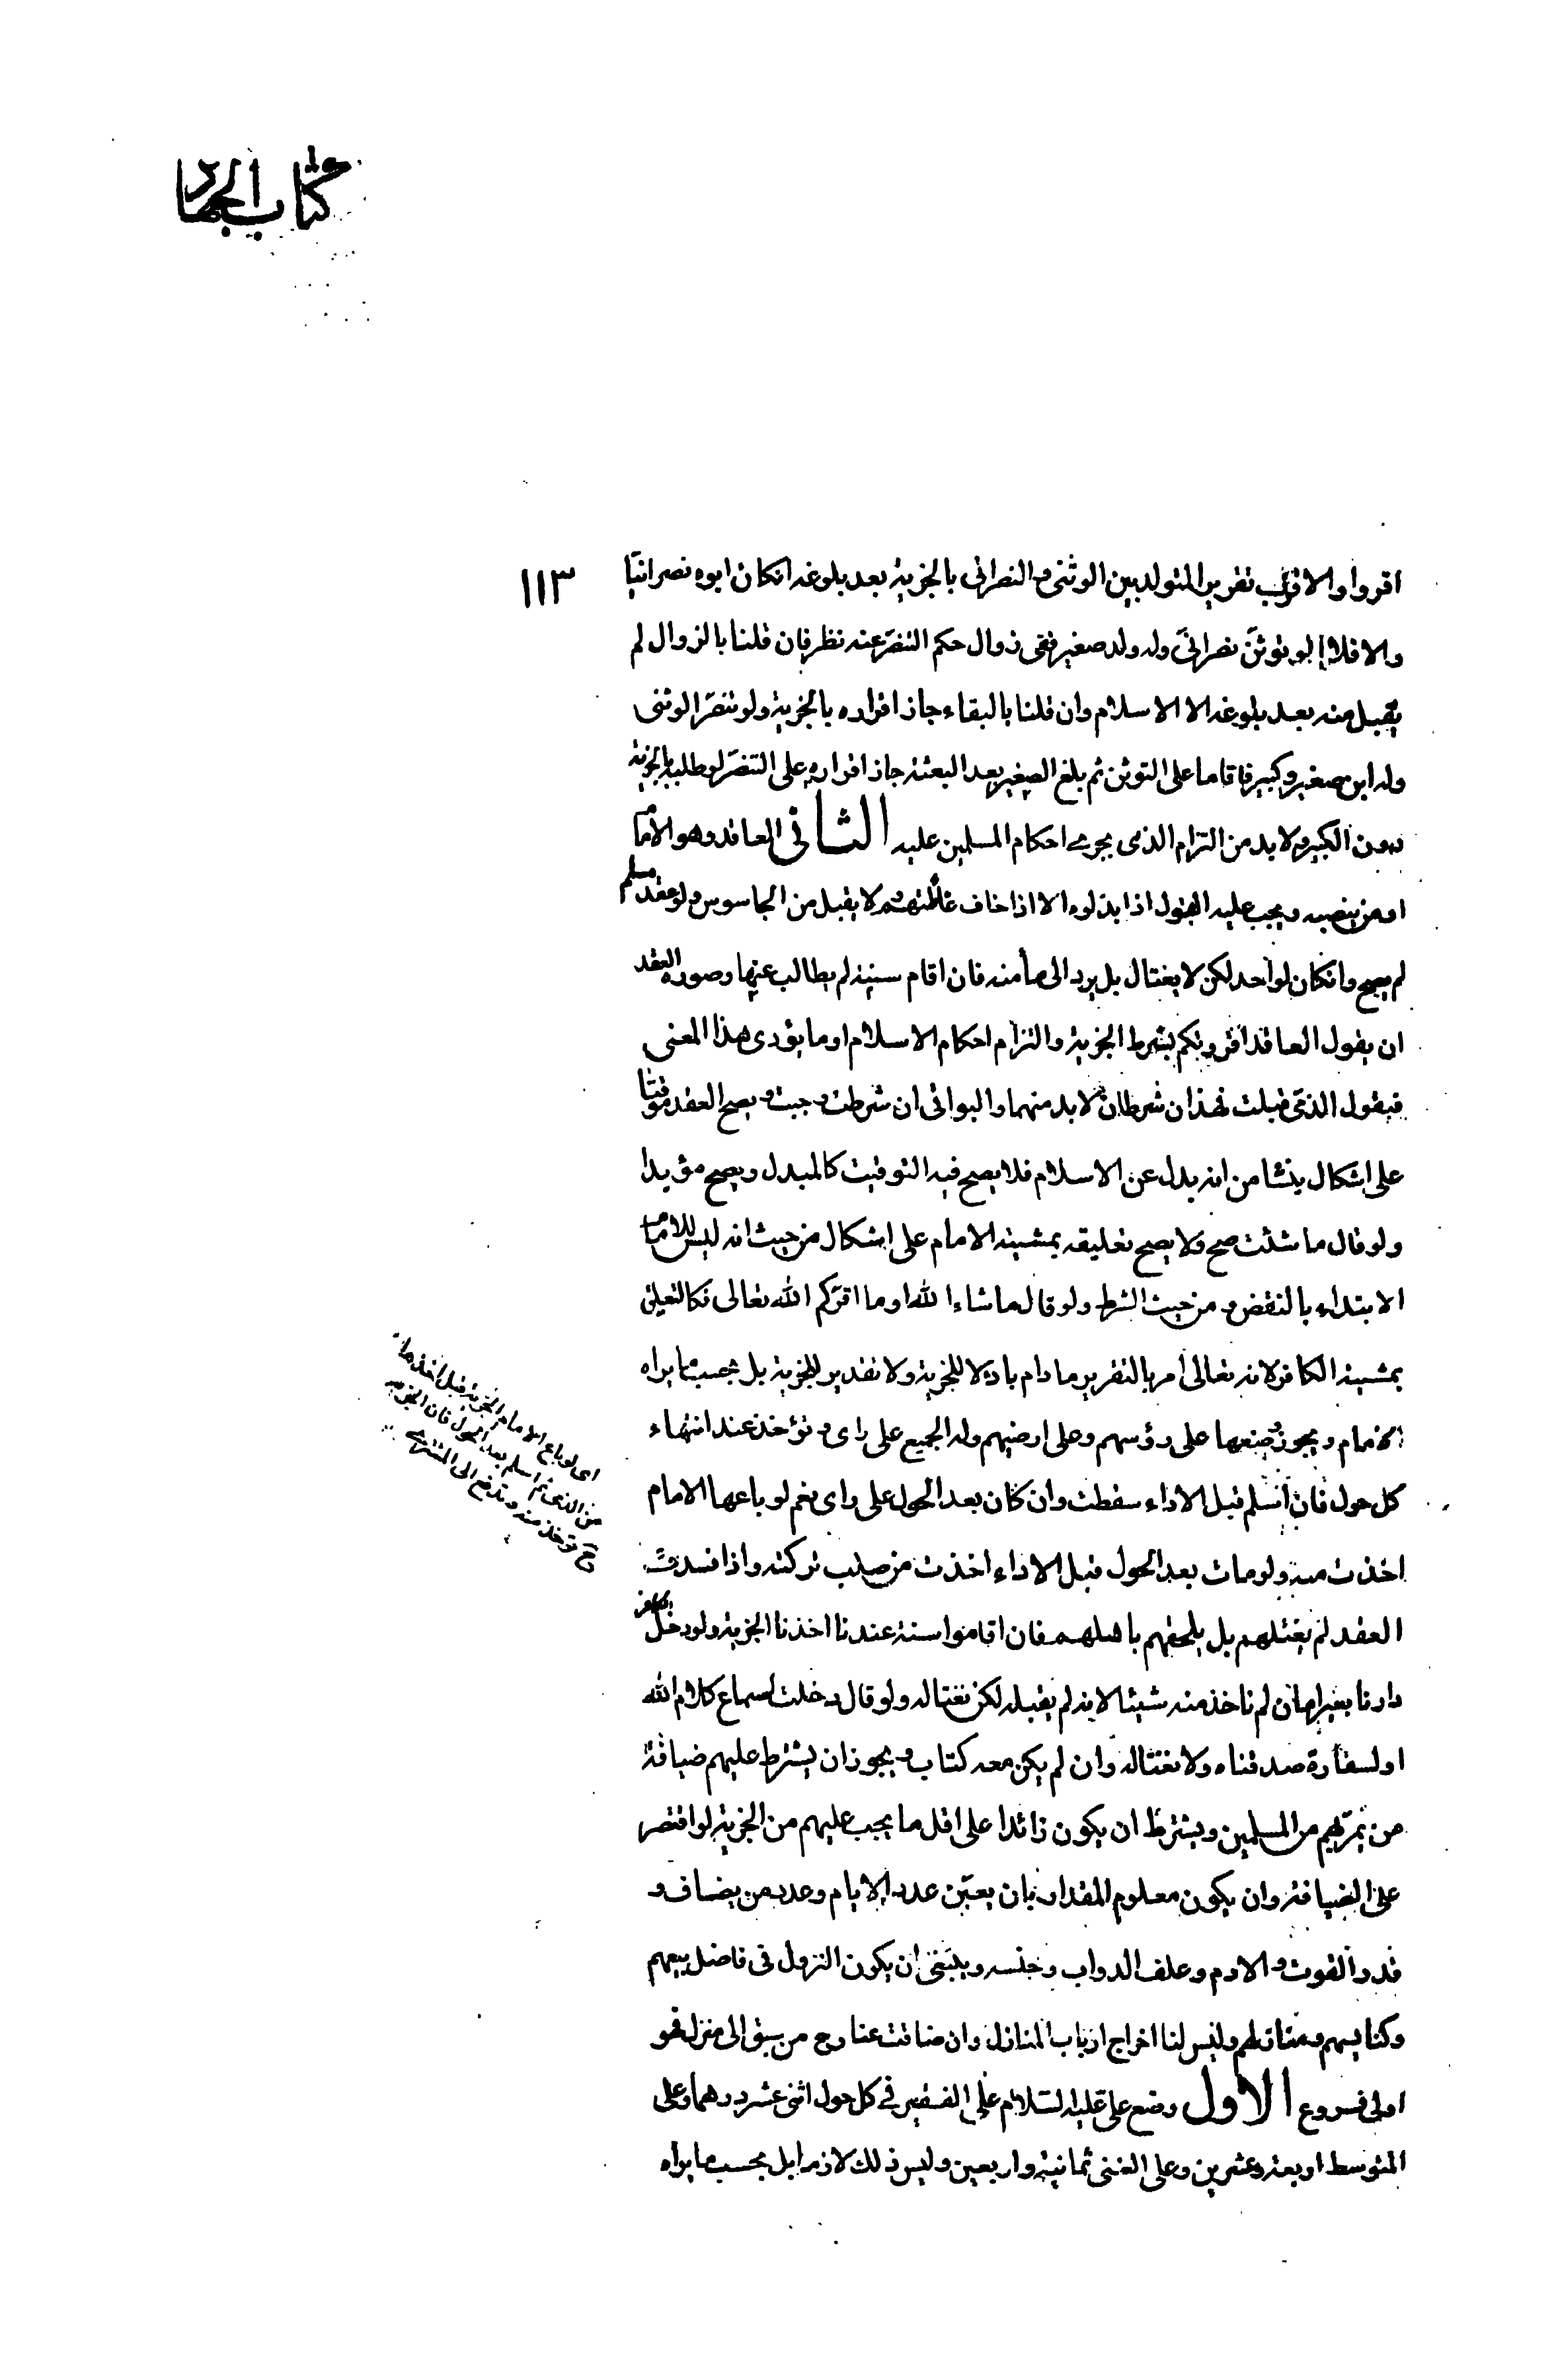 كتاب الجهاد
١١٣
اقروا والاقرب تقرير المتولد بين الوثنى والنصرانى بالجزية بعد بلوغه انكان ابوه نصرانيّا
والا فلا لو توثّن نصرانىّ وله ولد صغير ففى زوال حكم التنصّر عنه نظر فان قلنا بالزوال لم
يقبل منه بعد بلوغه الا الاسلام وان قلنا بالبقاء جاز اقراره بالجزية ولو تنصّر الوثنى
وله ابن صغير وكبير فاقاما على التوثن ثم بلغ الصغير بعد البعثة جاز اقراره على التنصّر لو طلبه بالجزية
دون الكبير ولابد من التزام الذمى بجرى احكام المسلمين عليه الثانى العاقد وهو الامام
او من ينصبه ويجب عليه القبول اذا بذلوه الا اذا خاف غائلتهم ولا يقبل من الجاسوس ولو عقد مسلم
لم يصح وانكان لواحد لكن لا يغتال بل يرد الى مأمنه فان اقام سنية لم يطالب عنها وصورة العقد
ان يقول العاقد اقررتكم بشرط الجزية والتزام احكام الاسلام او ما يؤدى هذا المعنى
فيقول الذمّى قبلت فهذان شرطان لابد منهما والبواقى ان شرطت وجبت ويصح العقد موقتا
على اشكال ينشا من انه بدل عن الاسلام فلا يصح فيه التوقيت كالمبدل ويصح مؤبدا
ولو قال ما شئت صح ولا يصح تعليقه بمشية الامام على اشكال من حيث انه ليس للامام
الابتداء بالنقض ومن حيث الشرط ولو قال ما شاء الله او ما اقرّكم الله تعالى فكالتعليق
بمشية الكافر لانه تعالى امر بالتقرير ما دام باذلا للجزية ولا تقدير للجزية بل بحسب ما يراه
الامام ويجوز وضعها على رؤسهم وعلى ارضيهم وله الجمع على راى وتؤخذ عند انتهاء
كل حول فان اسلم قبل الاداء سقطت وان كان بعد الحول على راى نعم لو باعها الامام
اخذت منه ولو مات بعد الحول قبل الاداء اخذت من صلب تركته واذا فسدت
العقد لم يغتلهم بل يلحقهم باهلهم فان اقاموا سنة عندنا اخذنا الجزية ولو دخل كافر
دارنا بغير امان لم ناخذ منه شيئا لانه لم يقبله لكن نغتاله ولو قال دخلت لسماع كلام الله
او لسفارة صدقناه ولا نغتاله وان لم يكن معه كتاب ويجوز ان يشترط عليهم ضيافة
من يمرّ بهم من المسلمين ويشترط ان يكون زائدا على اقل ما يجب عليهم من الجزية لو اقتصر
على الضيافة وان يكون معلوم المقدار بان يعيّن عدد الايام وعدد من يضاف و
قدر القوت والادم وعلف الدواب وجنسه وينبغى ان يكون النزول فى فاضل بيعهم
وكنايسهم ومنازلهم وليس لنا اخراج ارباب المنازل وان ضاقت عنا وح من سبق الى منزل فهو
اولى فروع الاول وضع على عليه السّلام على الفقير فى كل حول اثنى عشر درهما وعلى
المتوسط اربعة وعشرين وعلى الغنى ثمانية واربعين وليس ذلك لازما بل بحسب ما يراه
اى لو باع الامام الجزية قبل اخذها
من الذمى ثم اسلم بعد الحول فان الجزية
ح توخذ منه وتدفع الى المشترى